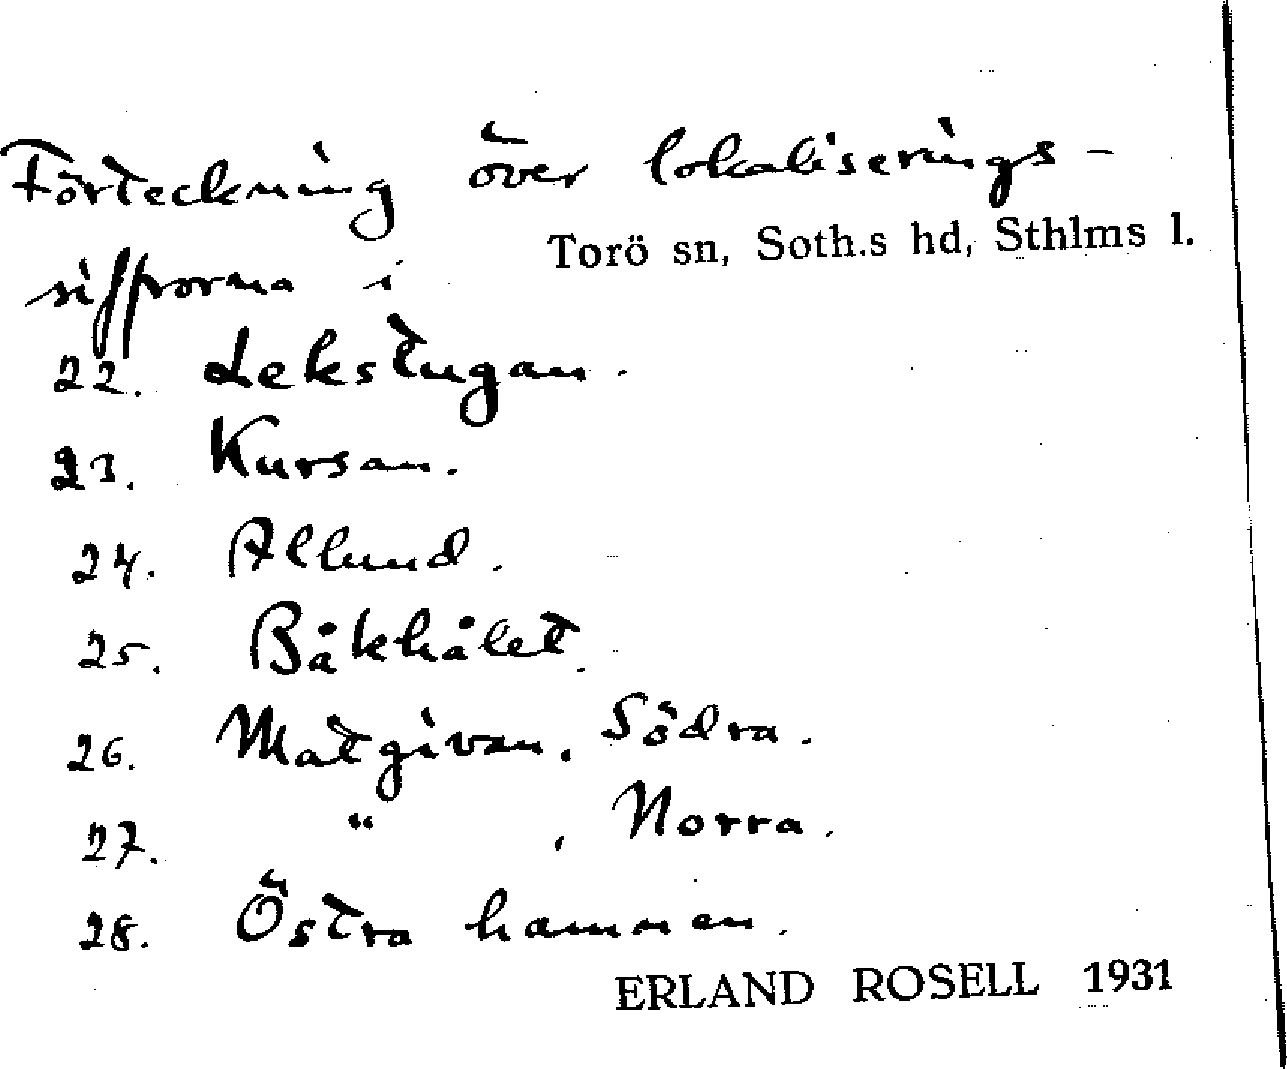 Förteckning över lokaliserings-
siffrorna i
Torö sn, Soth.s hd, Sthlms l.
22. Lekstugan.
23. Kursan.
24. Allund.
25. Båkhålet.
26. Matgivan, Södra.
27. " , Norra.
28. Östra hamnen.
ERLAND ROSELL 1931